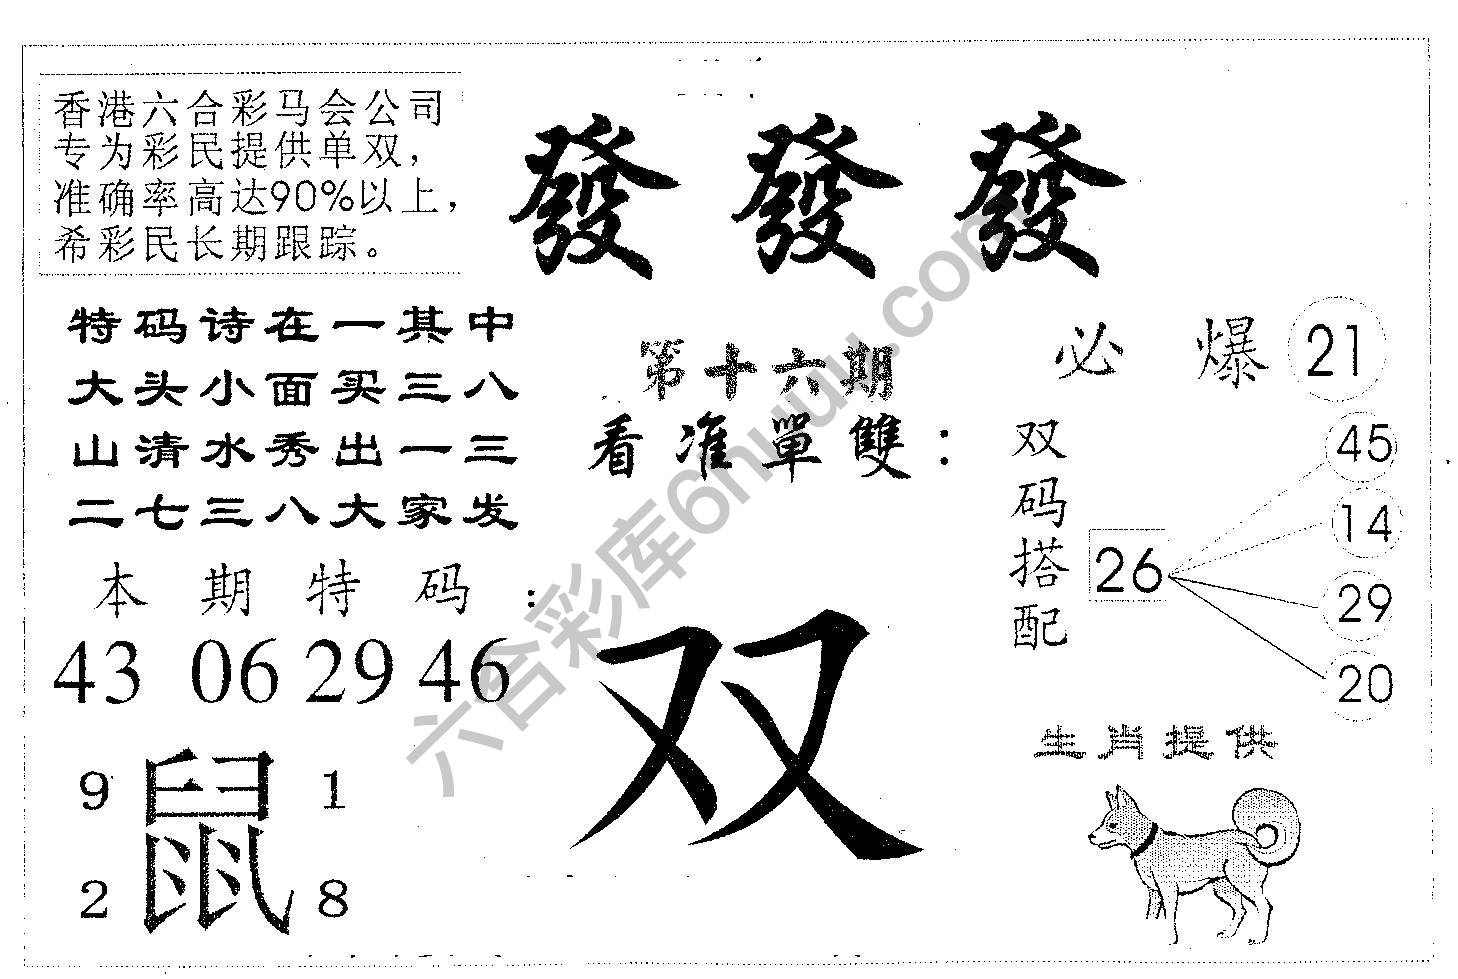 香港六合彩马会公司
专为彩民提供单双，
准确率高达90%以上，
希彩民长期跟踪。
發發發
特码诗在一其中
大头小面买三八
山清水秀出一三
二七三八大家发
第十六期
看准單雙：
必爆 21
双码搭配
26
45
14
29
20
本期特码：
43 06 29 46
双
9 鼠 1
2 8
生肖提供
六合彩库6huu.com